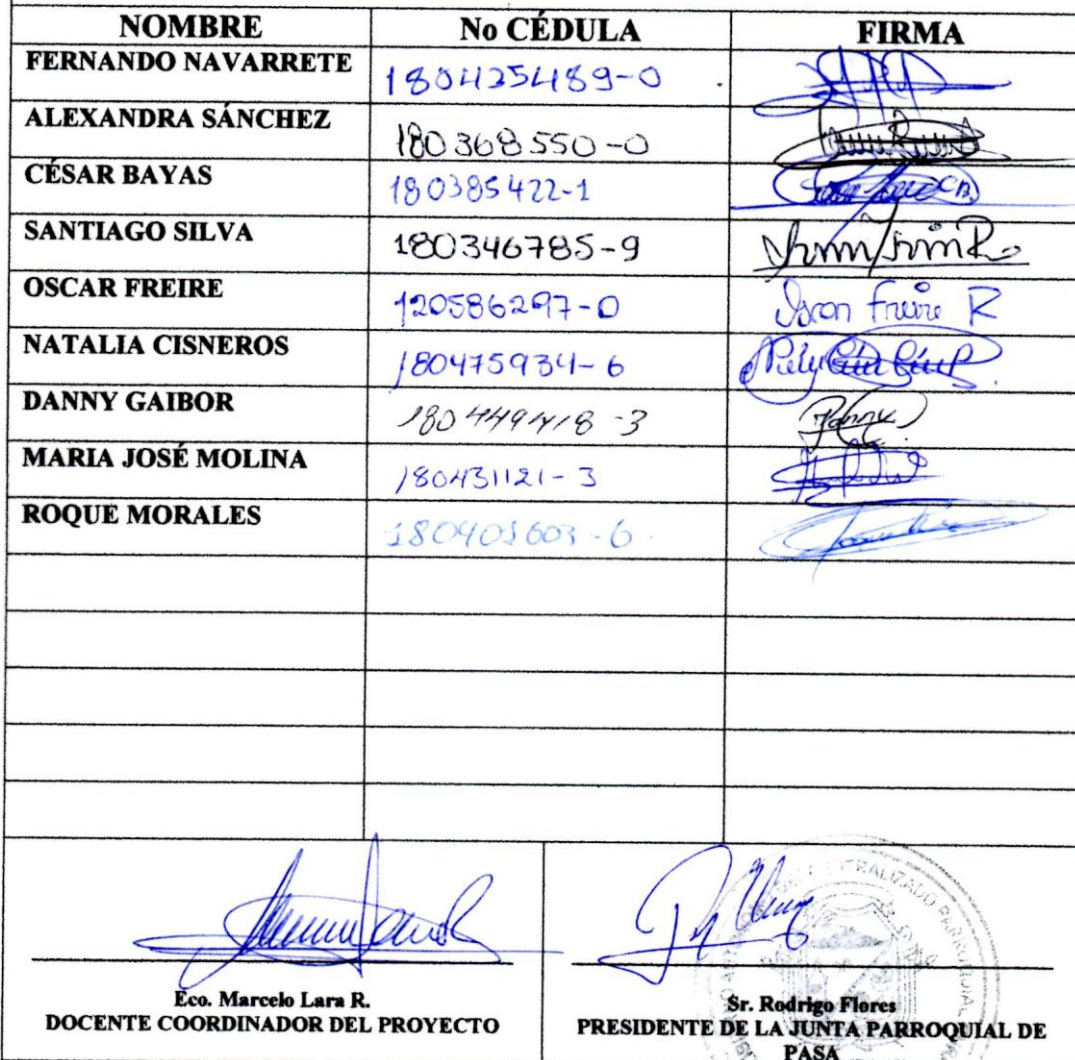 NOMBRE No CÉDULA FIRMA
FERNANDO NAVARRETE 180425489-0
ALEXANDRA SÁNCHEZ 180368550-0
CÉSAR BAYAS 180385422-1
SANTIAGO SILVA 180346785-9
OSCAR FREIRE 120586297-0 Oscar Freire R
NATALIA CISNEROS 180475934-6
DANNY GAIBOR 180449418-3 Danny
MARIA JOSÉ MOLINA 180431121-3
ROQUE MORALES 180401603-6
Eco. Marcelo Lara R.
DOCENTE COORDINADOR DEL PROYECTO
Sr. Rodrigo Flores
PRESIDENTE DE LA JUNTA PARROQUIAL DE
PASA